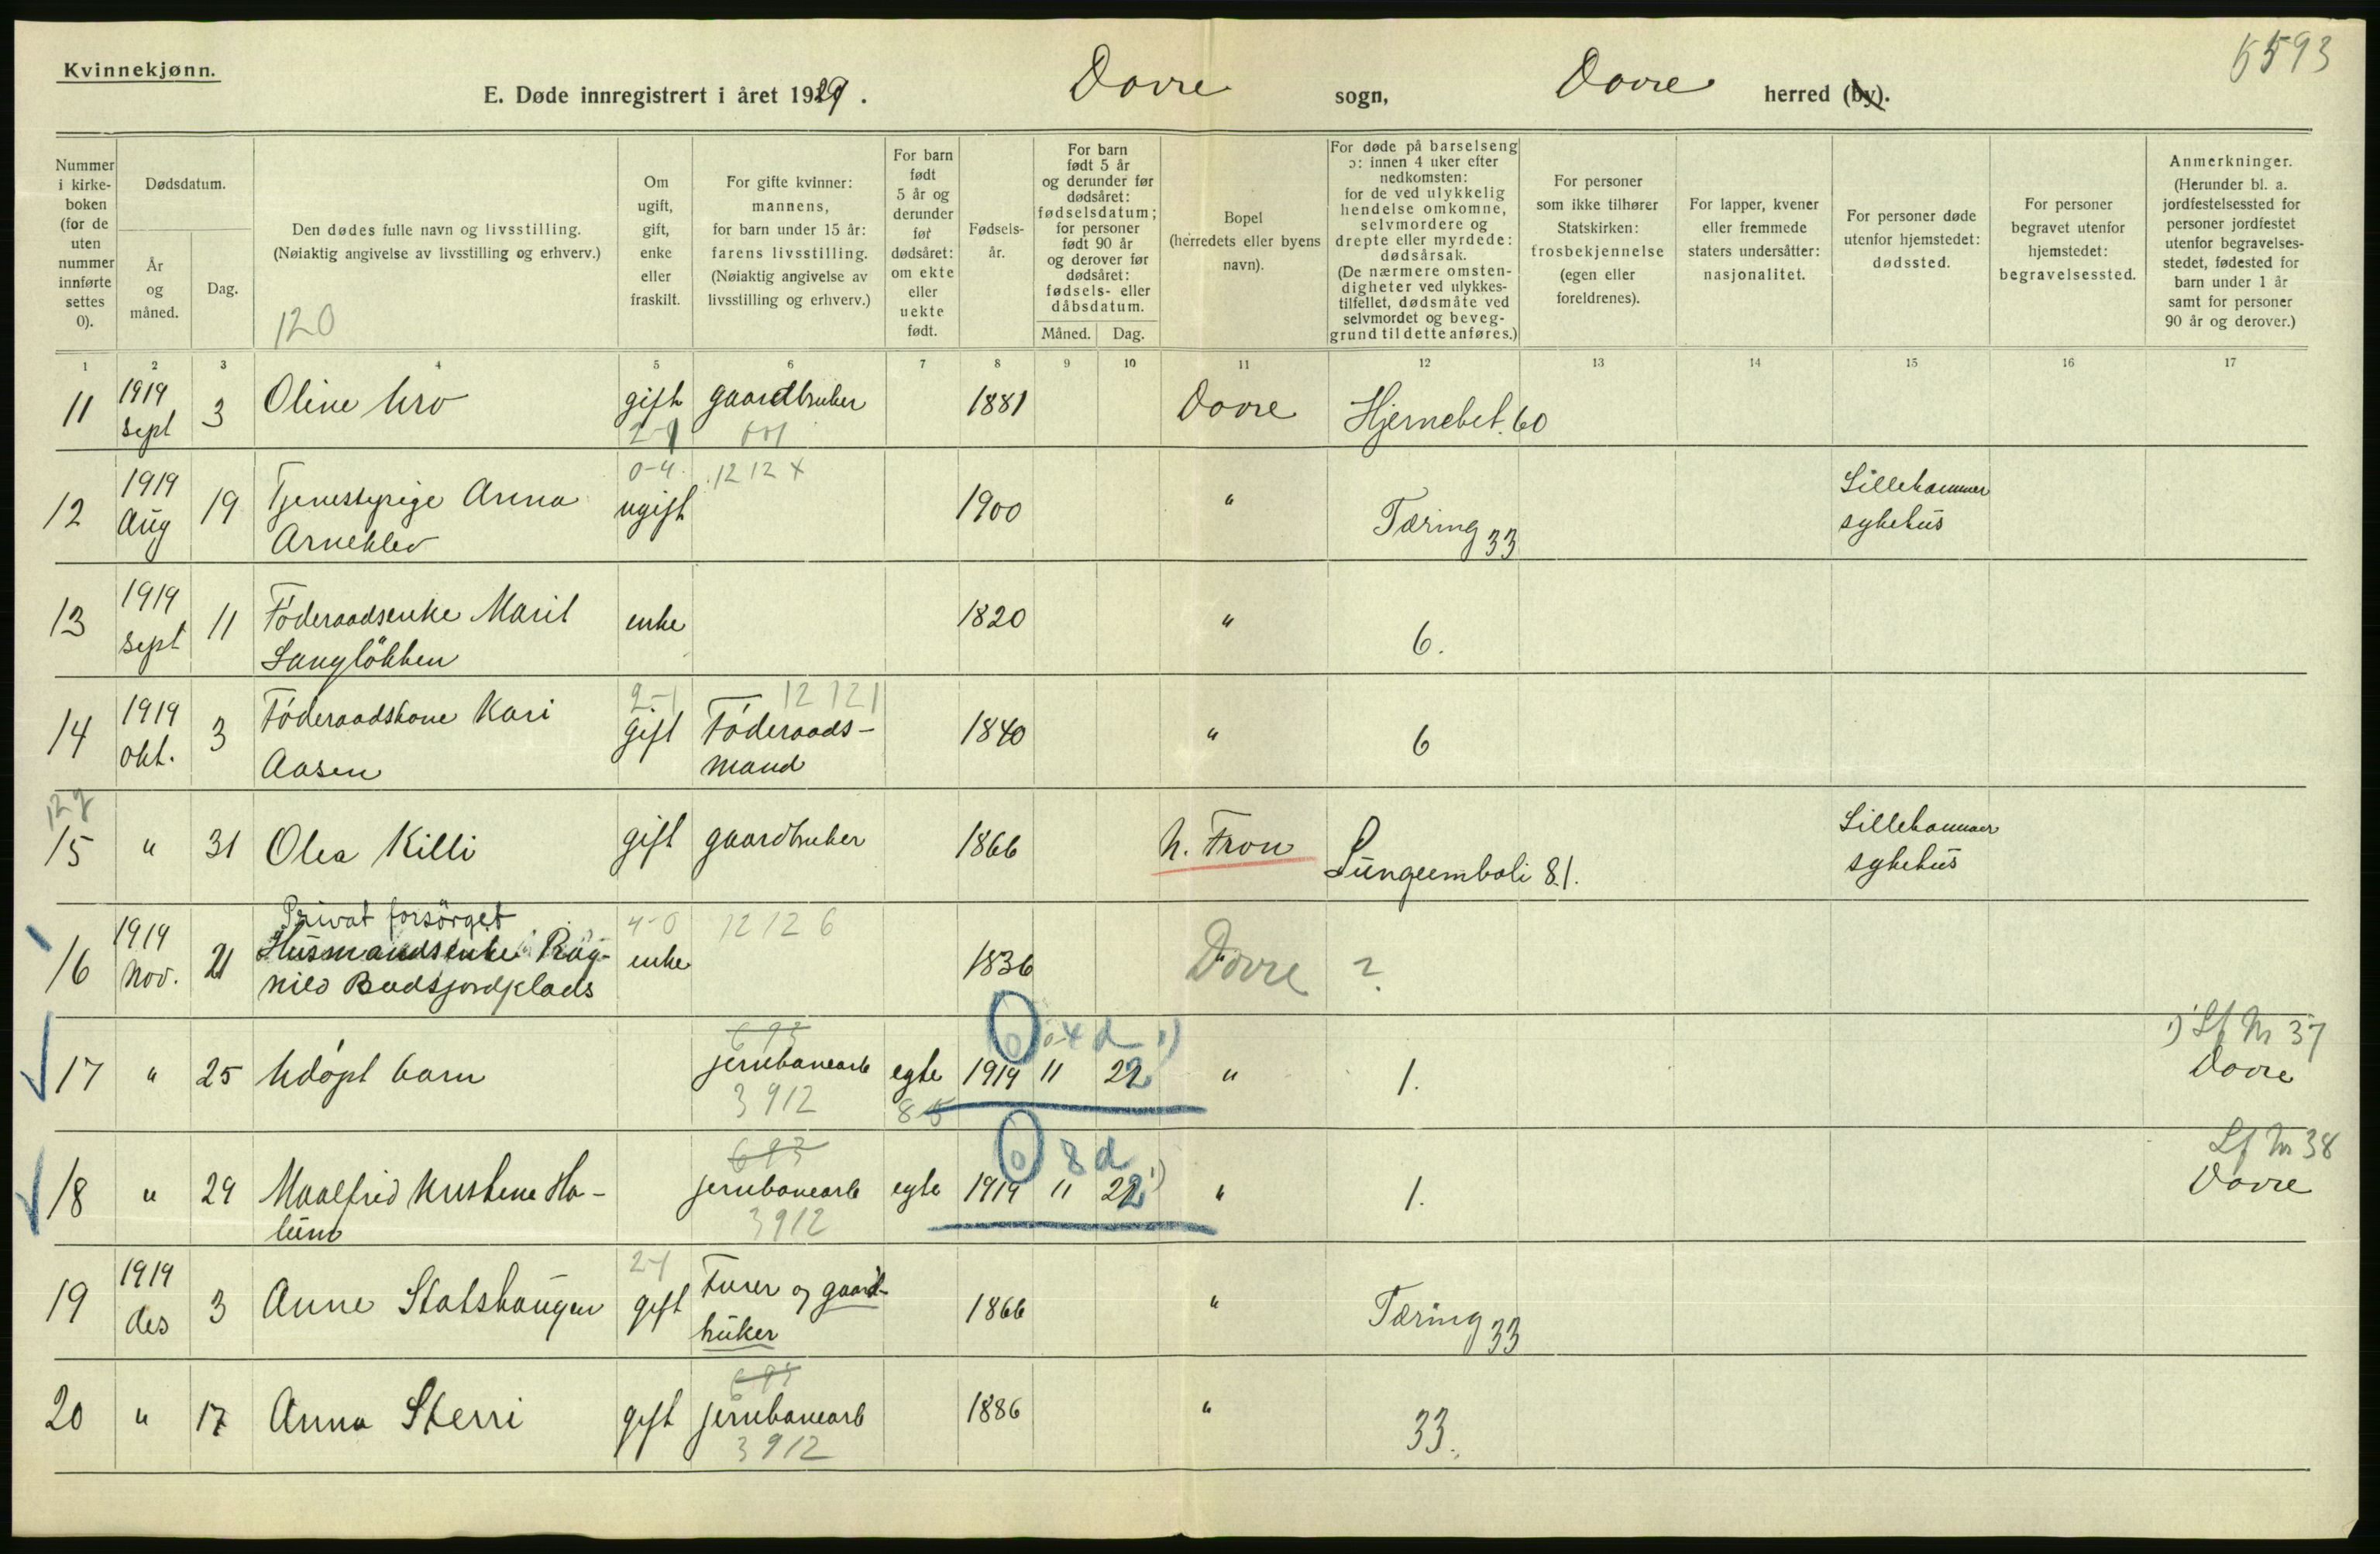 Kvinnekjønn.
5593
E. Døde innregistrert i året 1919. Dovre sogn, Dovre herred (by).
Nummer i kirke-boken (for de uten nummer innførte settes 0).
Dødsdatum.
År og måned.
Dag.
Den dødes fulle navn og livsstilling.
(Nøiaktig angivelse av livsstilling og erhverv.)
120
Om ugift, gift, enke eller fraskilt.
For gifte kvinner: mannens, for barn under 15 år: farens livsstilling. (Nøiaktig angivelse av livsstilling og erhverv.)
For barn født 5 år og derunder før dødsåret: om ekte eller uekte født.
Fødsels-år.
For barn født 5 år og derunder før dødsåret: fødselsdatum; for personer født 90 år og derover før dødsåret: fødsels- eller dåbsdatum.
Måned. Dag.
Bopel (herredets eller byens navn).
For døde på barselseng ɔ: innen 4 uker efter nedkomsten: for de ved ulykkelig hendelse omkomne, selvmordere og drepte eller myrdede: dødsårsak. (De nærmere omsten-digheter ved ulykkes-tilfellet, dødsmåte ved selvmordet og beveg-grund til dette anføres.)
For personer som ikke tilhører Statskirken: trosbekjennelse (egen eller foreldrenes).
For lapper, kvener eller fremmede staters undersåtter: nasjonalitet.
For personer døde utenfor hjemstedet: dødssted.
For personer begravet utenfor hjemstedet: begravelsessted.
Anmerkninger. (Herunder bl. a. jordfestelsessted for personer jordfestet utenfor begravelses-stedet, fødested for barn under 1 år samt for personer 90 år og derover.)
1 2 3 4 5 6 7 8 9 10 11 12 13 14 15 16 17
11 1919 sept 3 Oline Uro gift gaardbruker 1881 Dovre Hjernebet. 60
2-1
12 1919 Aug 19 Tjenestepige Anna ugift 1900 " Tæring 33 Lillehammer
Arneklev sykehus
0-4 1212 x
13 1919 sept 11 Föderaadsenke Marit enke 1820 " 6.
Langlökken
14 1919 okt. 3 Föderaadskone Kari gift Föderaads- 1840 " 6
Aasen mand
2-1 12 121
15 " 31 Olea Killi gift gaardbruker 1866 N. Fron Lungeemboli 81. Lillehammer
sykehus
Privat forsörget 4-0 12126
16 1919 Nov. 21 Husmandsenke Rag- enke 1836 Dovre ?
nild Budsjordplads
17 " 25 Udöpt barn jernbanearb egte 1919 11 22 " 1. Dovre
693 3912 85 0 4 d 1) 1) Lf Nr 37
18 " 29 Maalfrid Kristine Ha- jernbanearb egte 1919 11 22 1) " 1. Dovre
lund
693 3912 0 8 d Lf Nr 38
19 1919 des 3 Anne Statshaugen gift Furer og gaard- 1866 " Tæring 33
bruker
2-1
20 " 17 Anna Sterri gift jernbanearb 1886 " 33.
693 3912